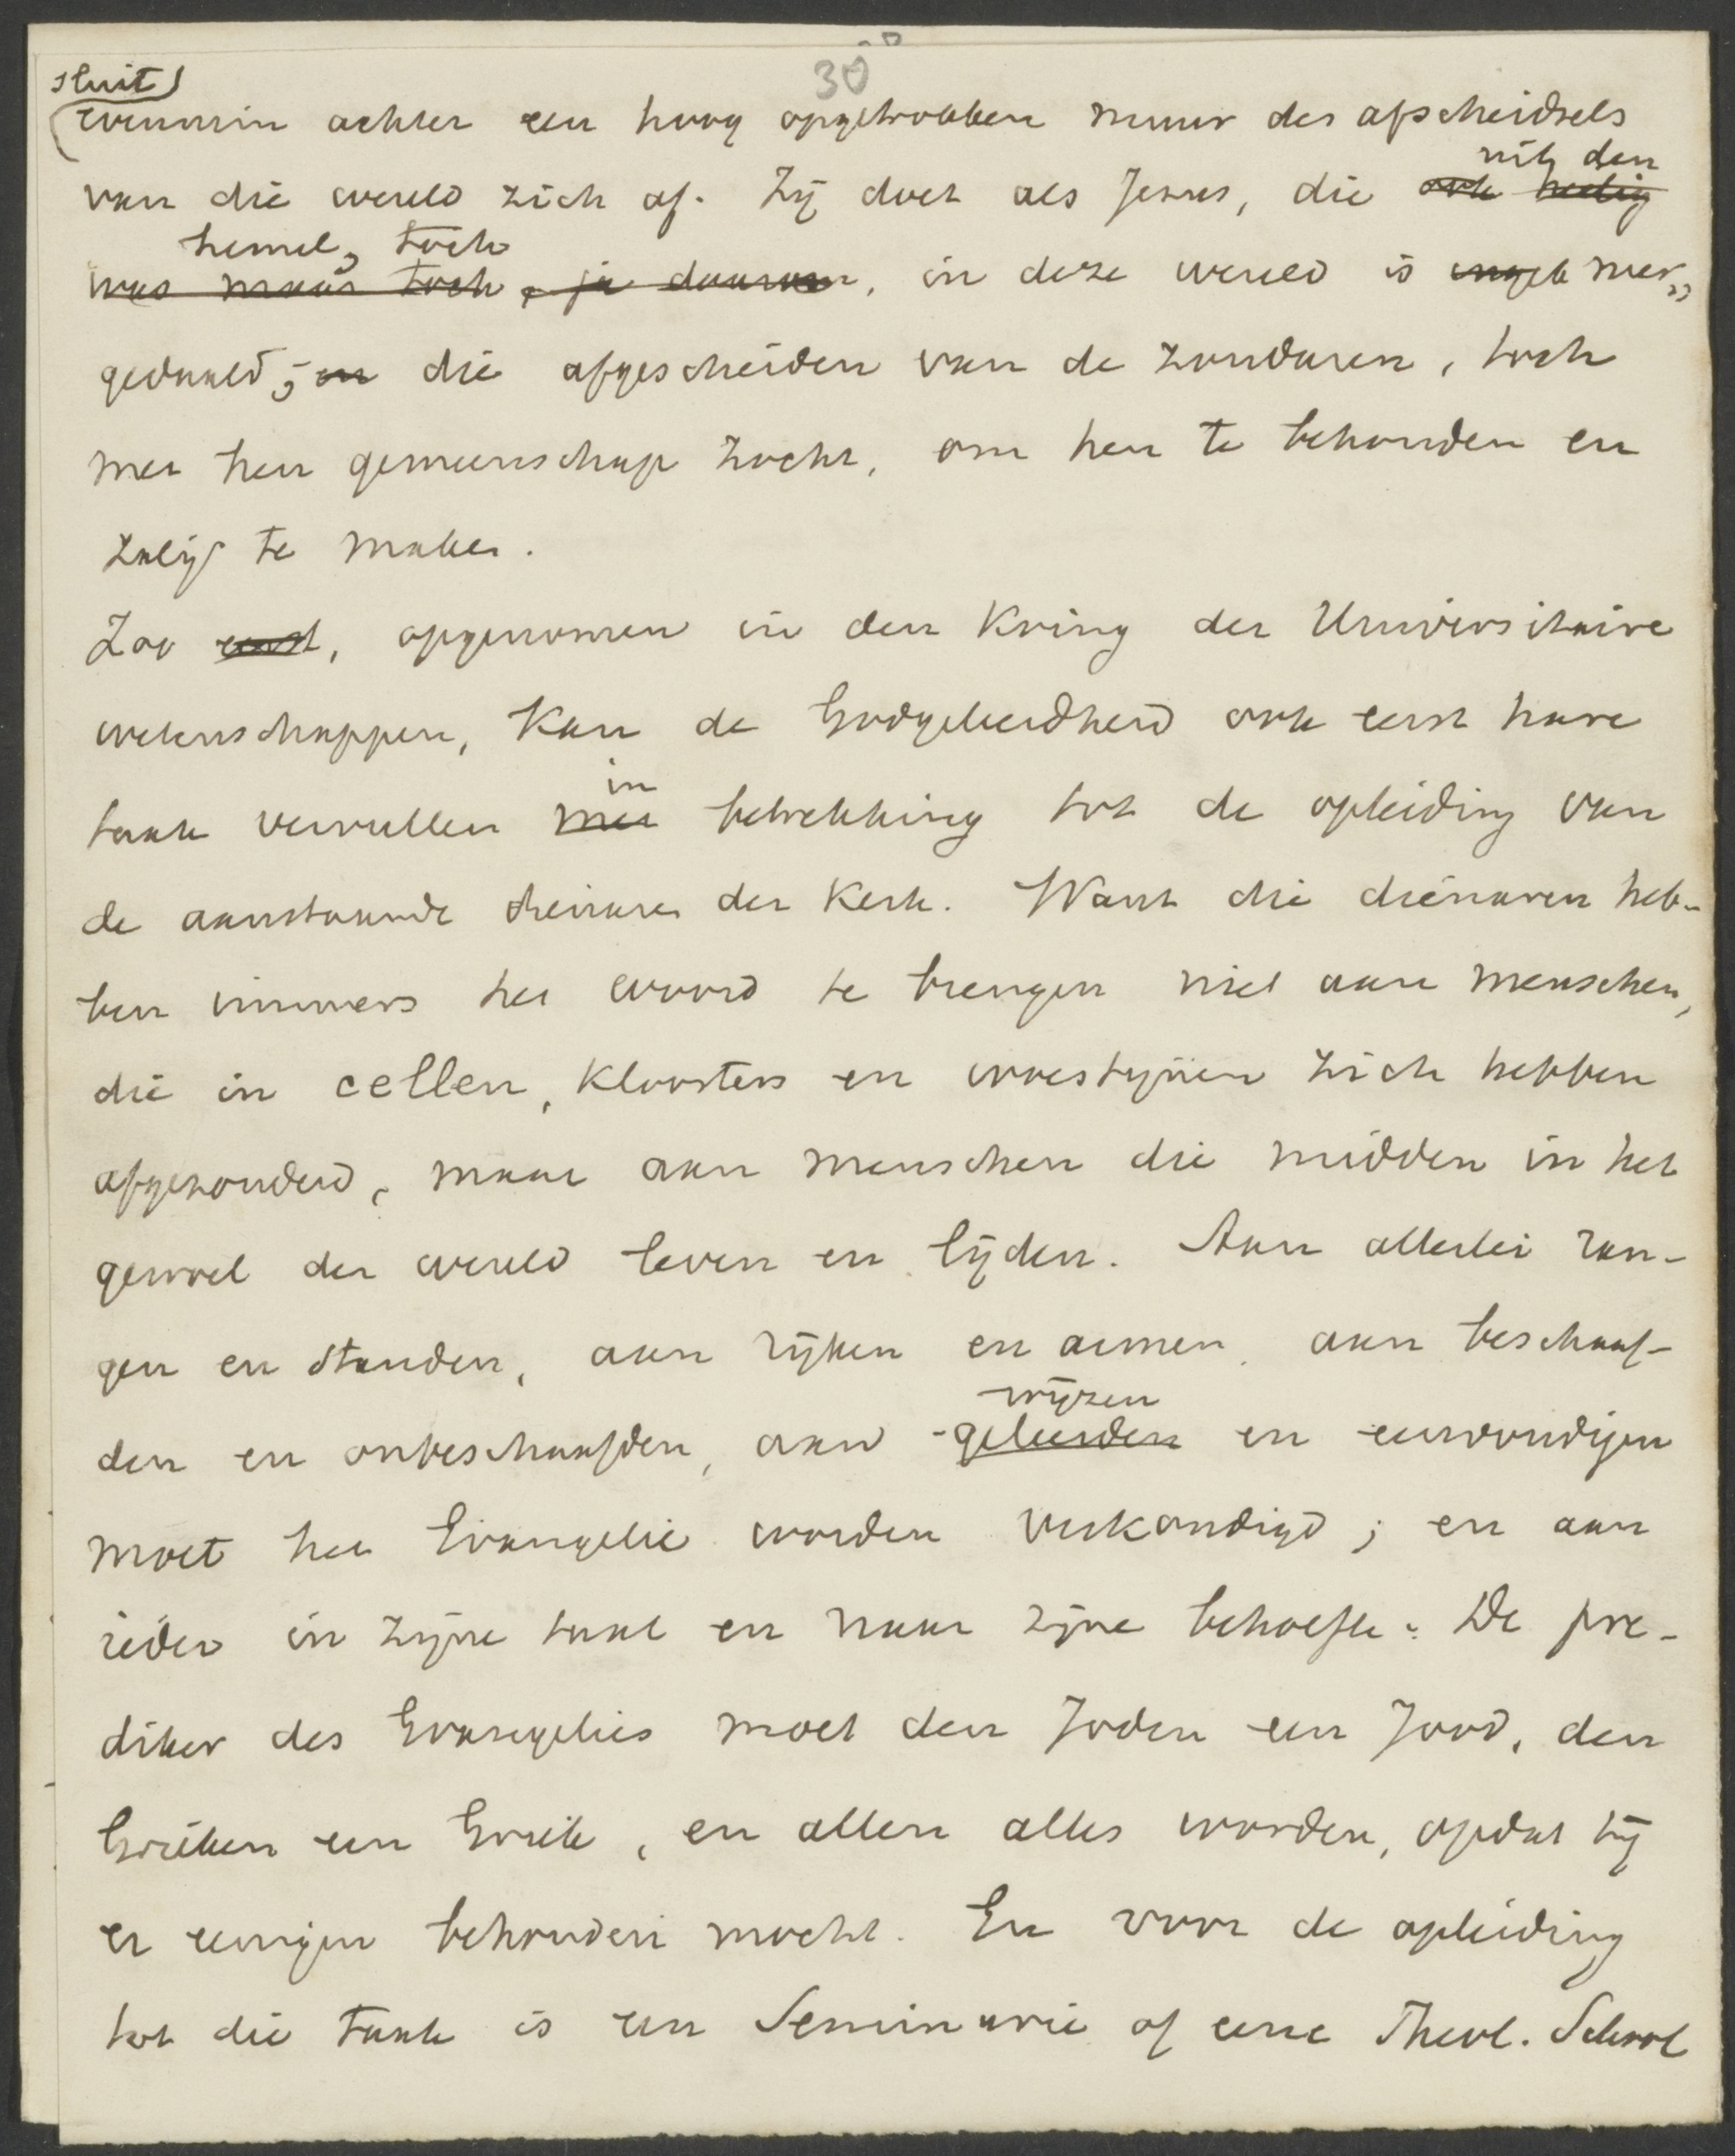 30
sluit
evenmin achter een hoog opgetrokken muur des afscheidsels
uit den
van die wereld zich af. Zij doet als Jezus, die ook heilig
hemel, toch
was maar toch, ja daarom, in deze wereld is ingek neer„
gedaald; en die afgescheiden van de zondaren, toch
met hen gemeenschap zocht, om hen te behouden en
zalig te maken.
Zoo eerst, opgenomen in den Kring der Universitaire
wetenschappen, Kan de Godgeleerdheid ook eerst hare
in
taak vervullen met betrekking tot de opleiding van
de aanstaande dienaren der Kerk. Want die dienaren heb-
ben immers het woord te brengen niet aan menschen,
die in cellen, Kloosters en woestijnen zich hebben
afgezonderd, maar aan menschen die midden in het
gewoel der wereld leven en lijden. Aan allerlei ran-
gen en standen, aan rijken en armen, aan beschaaf-
wijzen
den en onbeschaafden, aan geleerden en eenvoudigen
moet het Evangelie worden verkondigd; en aan
ieder in zijne taal en naar zijne behoefte. De pre-
diker des Evangelies moet den Joden een Jood, den
Grieken een Griek, en allen alles worden, opdat hij
er eenigen behouden mocht. En voor de opleiding
tot die taak is een Seminarie of eene Theol. School